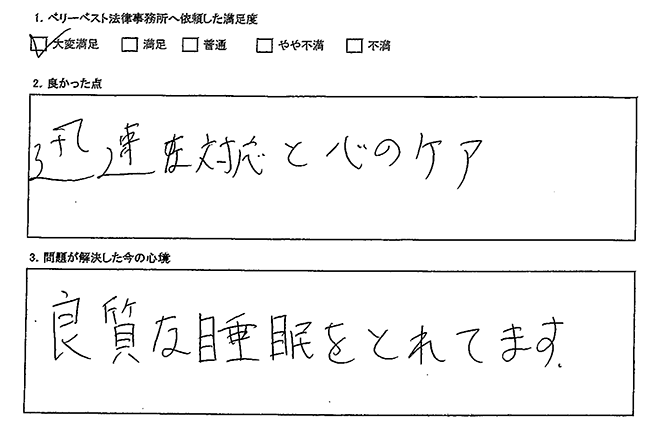 1. ベリーベスト法律事務所へ依頼した満足度
☑ 大変満足 □ 満足 □ 普通 □ やや不満 □ 不満
2. 良かった点
迅速な対応と心のケア
3. 問題が解決した今の心境
良質な睡眠をとれてます.